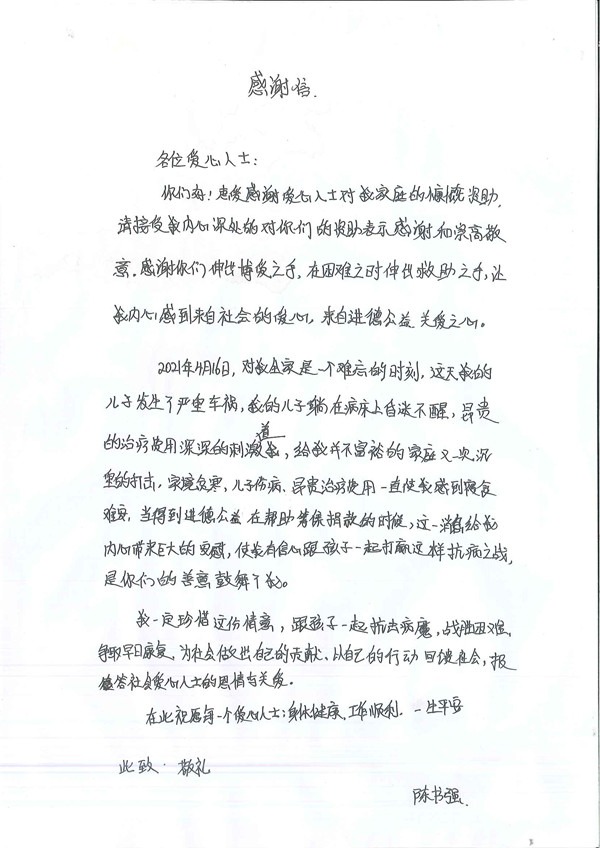 感谢信.
各位爱心人士:
你们好!衷感谢爱心人士对我家庭的慷慨资助.
请接受我内心深处的对你们的资助表示感谢和崇高敬
意。感谢你们伸出博爱之手,在困难之时伸出救助之手,让
我内心感到来自社会的爱心,来自进德公益关爱之心。
2021年4月16日,对我全家是一个难忘的时刻,这天我的
儿子发生了严重车祸,我的儿子躺在病床上昏迷不醒,昂贵
的治疗费用深深的刺激道我,给我并不富裕的家庭又一次沉
重的打击,家境贫寒,儿子伤病、昂贵治疗费用一直使我感到寝食
难安,当得到进德公益在帮助筹保捐款的时候,这一消息给我
内心带来巨大的震撼,使我有信心跟孩子一起打赢这样抗病之战,
是你们的善意鼓舞了我。
我一定珍惜这份情意,跟孩子一起抗击病魔,战胜困难,
争取早日康复,为社会做出自己的贡献、以自己的行动回馈社会,报
答社会爱心人士的恩情与关爱。
在此祝愿每一个爱心人士:身体健康、工作顺利.一生平安
此致·敬礼
陈书强.